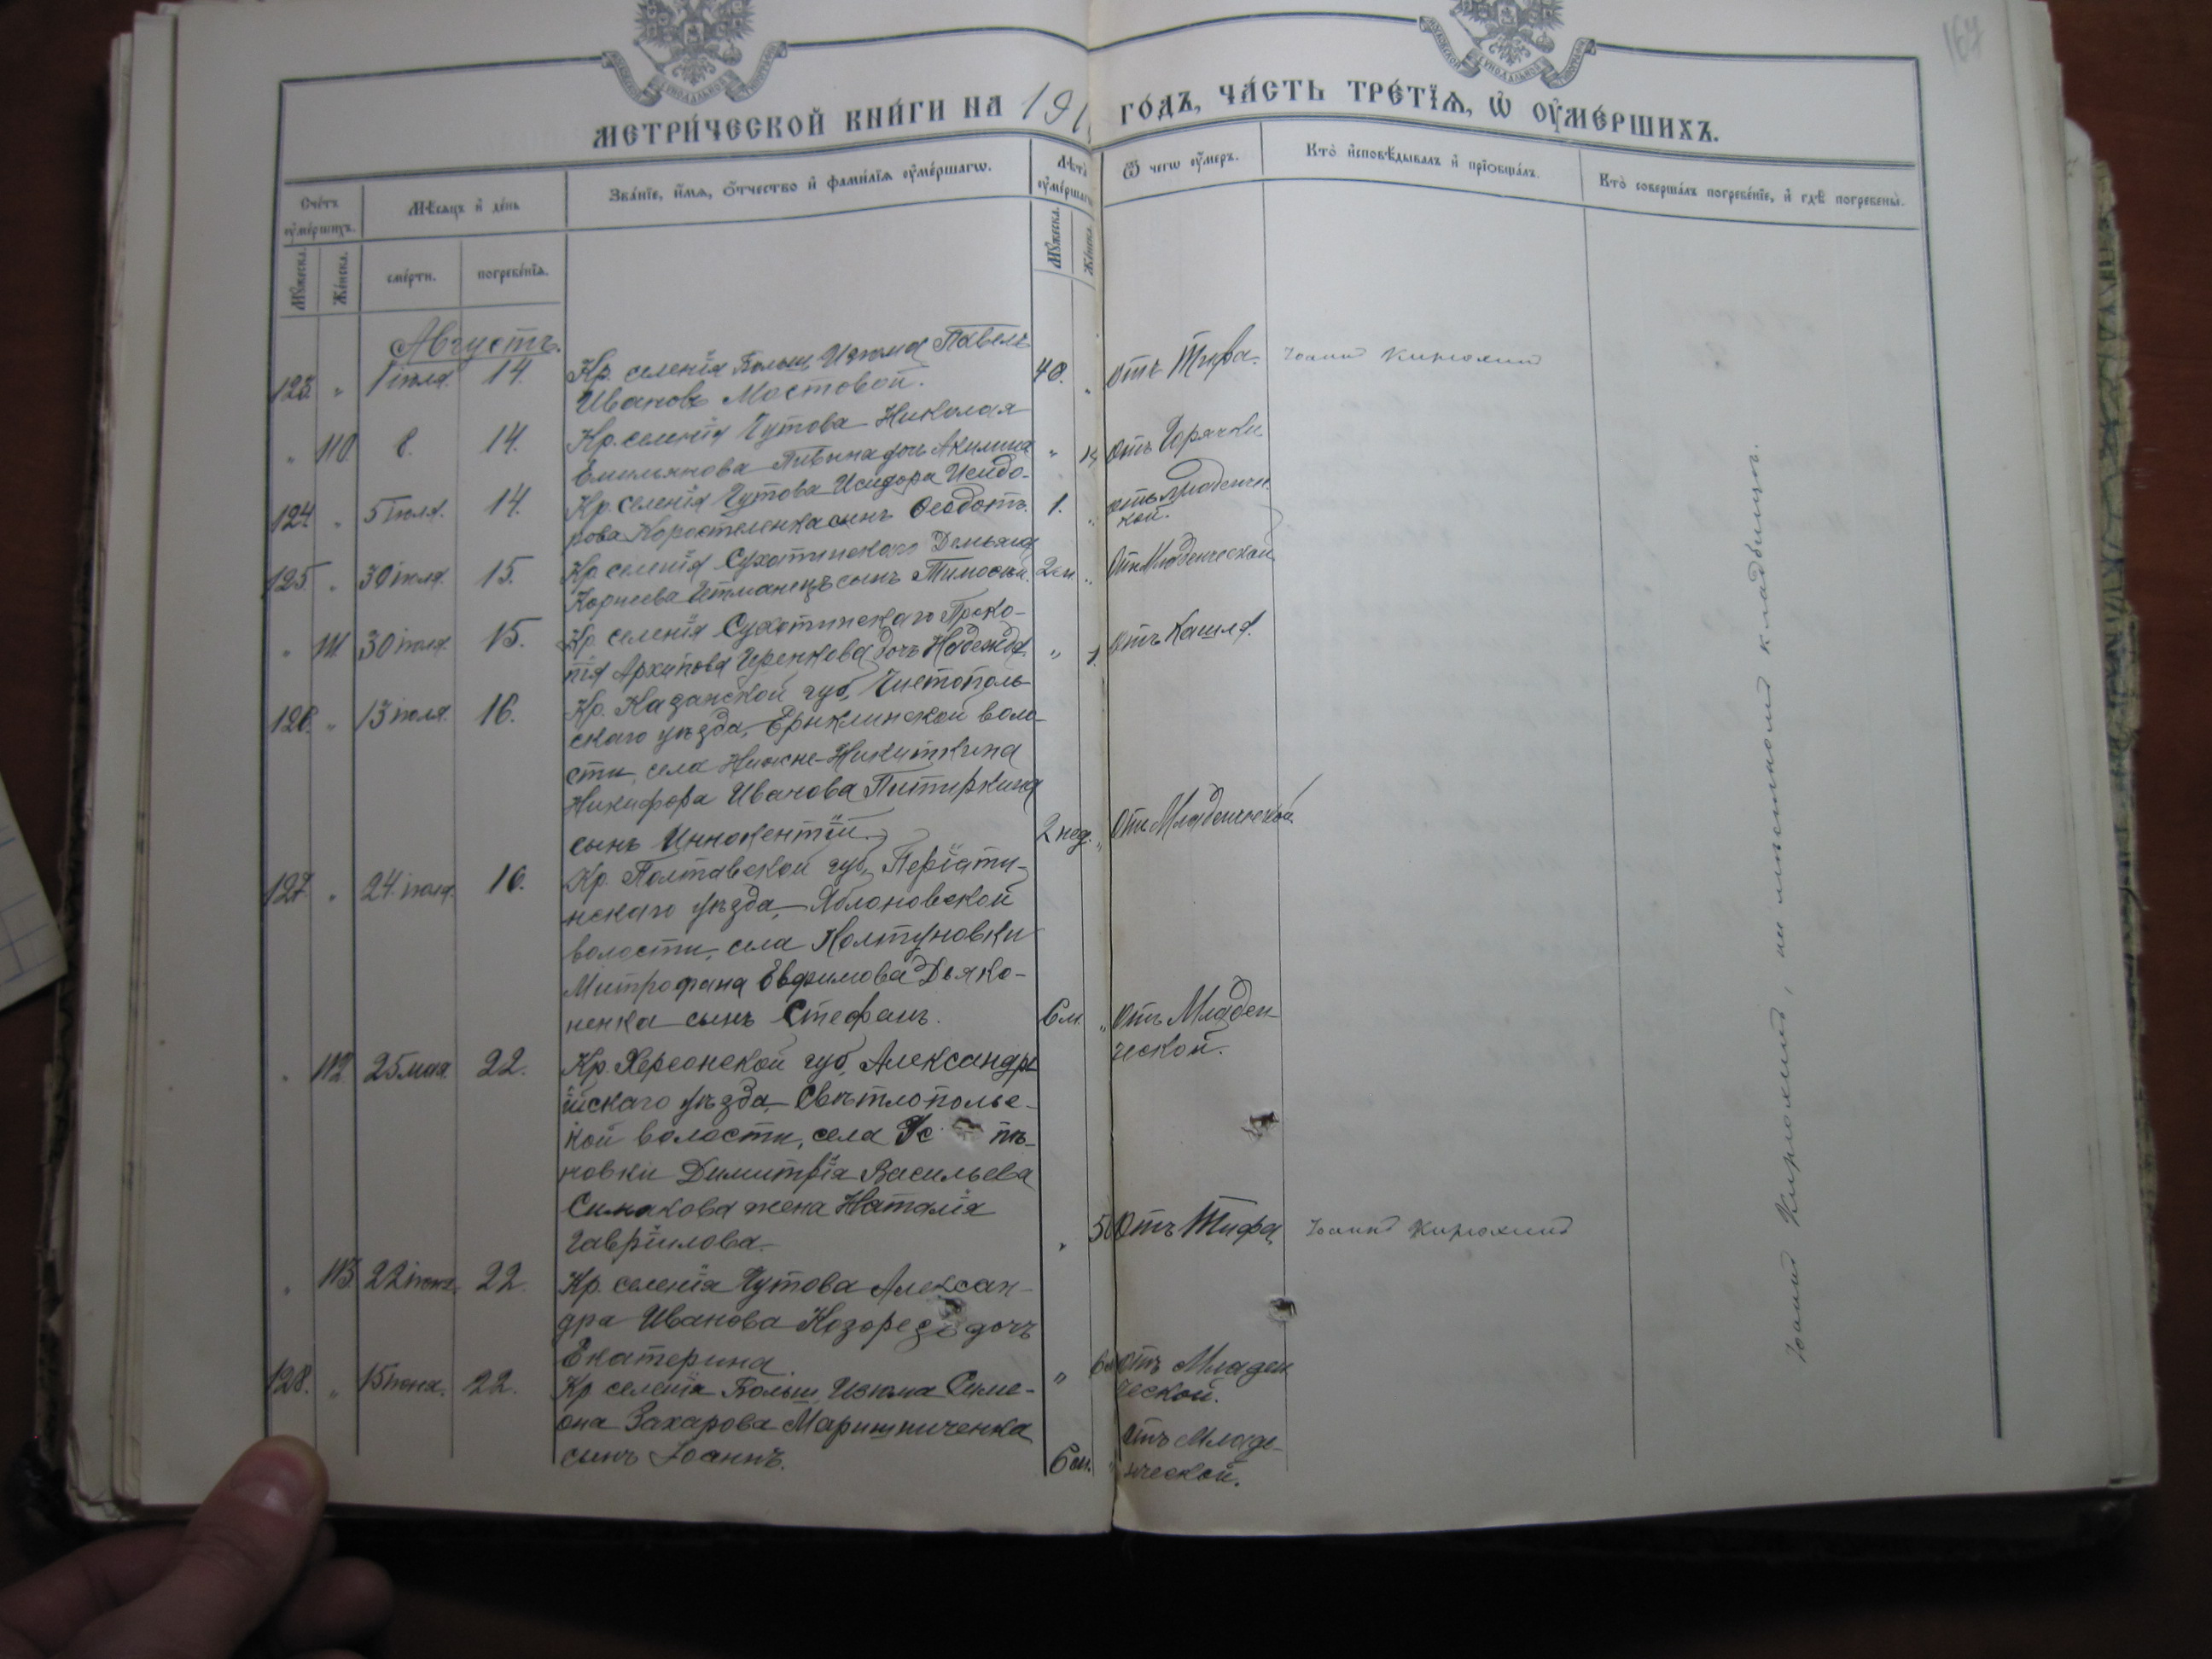 167
МЕТРИ́ЧЕСКОЙ КНИ́ГИ НА 191
ГО́ДЪ, ЧА́СТЬ ТРЕ́ТЇѦ, Ѡ҆ ОУ҆МЕ́РШИХЪ.
Сче́тъ оу҆ме́ршихъ.
Мꙋ́жеска.
Же́нска.
Мѣ́сяцъ и҆ де́нь
сме́рти.
погребе́нїѧ.
Зва́нїе, и҆́мѧ, ѻ҆́тчество и҆ фами́лїѧ оу҆ме́ршагѡ.
Лѣ́та оу҆ме́ршагѡ
Мꙋ́жеска.
Же́нска.
Ѿ чегѡ̀ оу҆́меръ.
Кто̀ и҆сповѣ́дывалъ и҆ прїѡбща́лъ.
Кто̀ соверша́лъ погребе́нїе, и҆ гдѣ̀ погребены̀.
Августъ.
123 " 1 іюля. 14. Кр. селенія Больш. Изюма Павелъ 48. " отъ Тифа. Іоаннъ Кирюхинъ
Ивановъ Мостовой.
" 110 8. 14. Кр. селенія Чутова Николая
Емильянова дочь Акилина " отъ Горячки
124 " 5 іюля. 14. Кр. селенія Чутова Исидора Исидо-
рова Коростеленка сынъ Ѳеодотъ. 1. " отъ
кой.
125 " 30 іюля. 15. Кр. селенія Сухотинскаго Демьяна
Корнеева Гетманецъ сынъ Тимоѳей. " отъ Младенческой
" 111. 30 іюля. 15. Кр. селенія Сухотинскаго Проко-
пія Архипова дочь Надежда. " 1. отъ Кашля.
126. " 13 іюля. 16. Кр. Казанской губ, Чистополь-
скаго уѣзда, Ерыклинской воло-
сти, села Нижне-Никиткина
Никифора Иванова Питиркина
сынъ Иннокентій. 2 нед. " отъ Младенческой
127. " 24 іюля. 16. Кр. Полтавской губ, Пирятин-
нскаго уѣзда, Яблоновской
волости, села Колтуновки
Митрофана Евфимова Дьяко-
ненка сынъ Стефанъ. 6 м. " отъ Младен-
ческой.
" 112. 25 мая. 22. Кр. Херсонской губ, Александрі
йскаго уѣзда, Свѣтлопольс-
кой волости, села
новки Димитрія Васильева
Симакова жена Наталія
Гавріилова. " 50 отъ Тифа, Іоаннъ Кирюхинъ
" 113 22 іюня. 22. Кр. селенія Чутова Алексан-
дра Иванова Козорезъ дочь
Екатерина. " отъ Младен
ческой.
128. " 15 іюня. 22. Кр селенія Больш. Изюма Симе-
она Захарова Маришниченка отъ Младе-
сынъ Іоаннъ. 6 м. " нческой.
Іоаннъ Кирюхинъ, на мѣстномъ кладбищѣ.